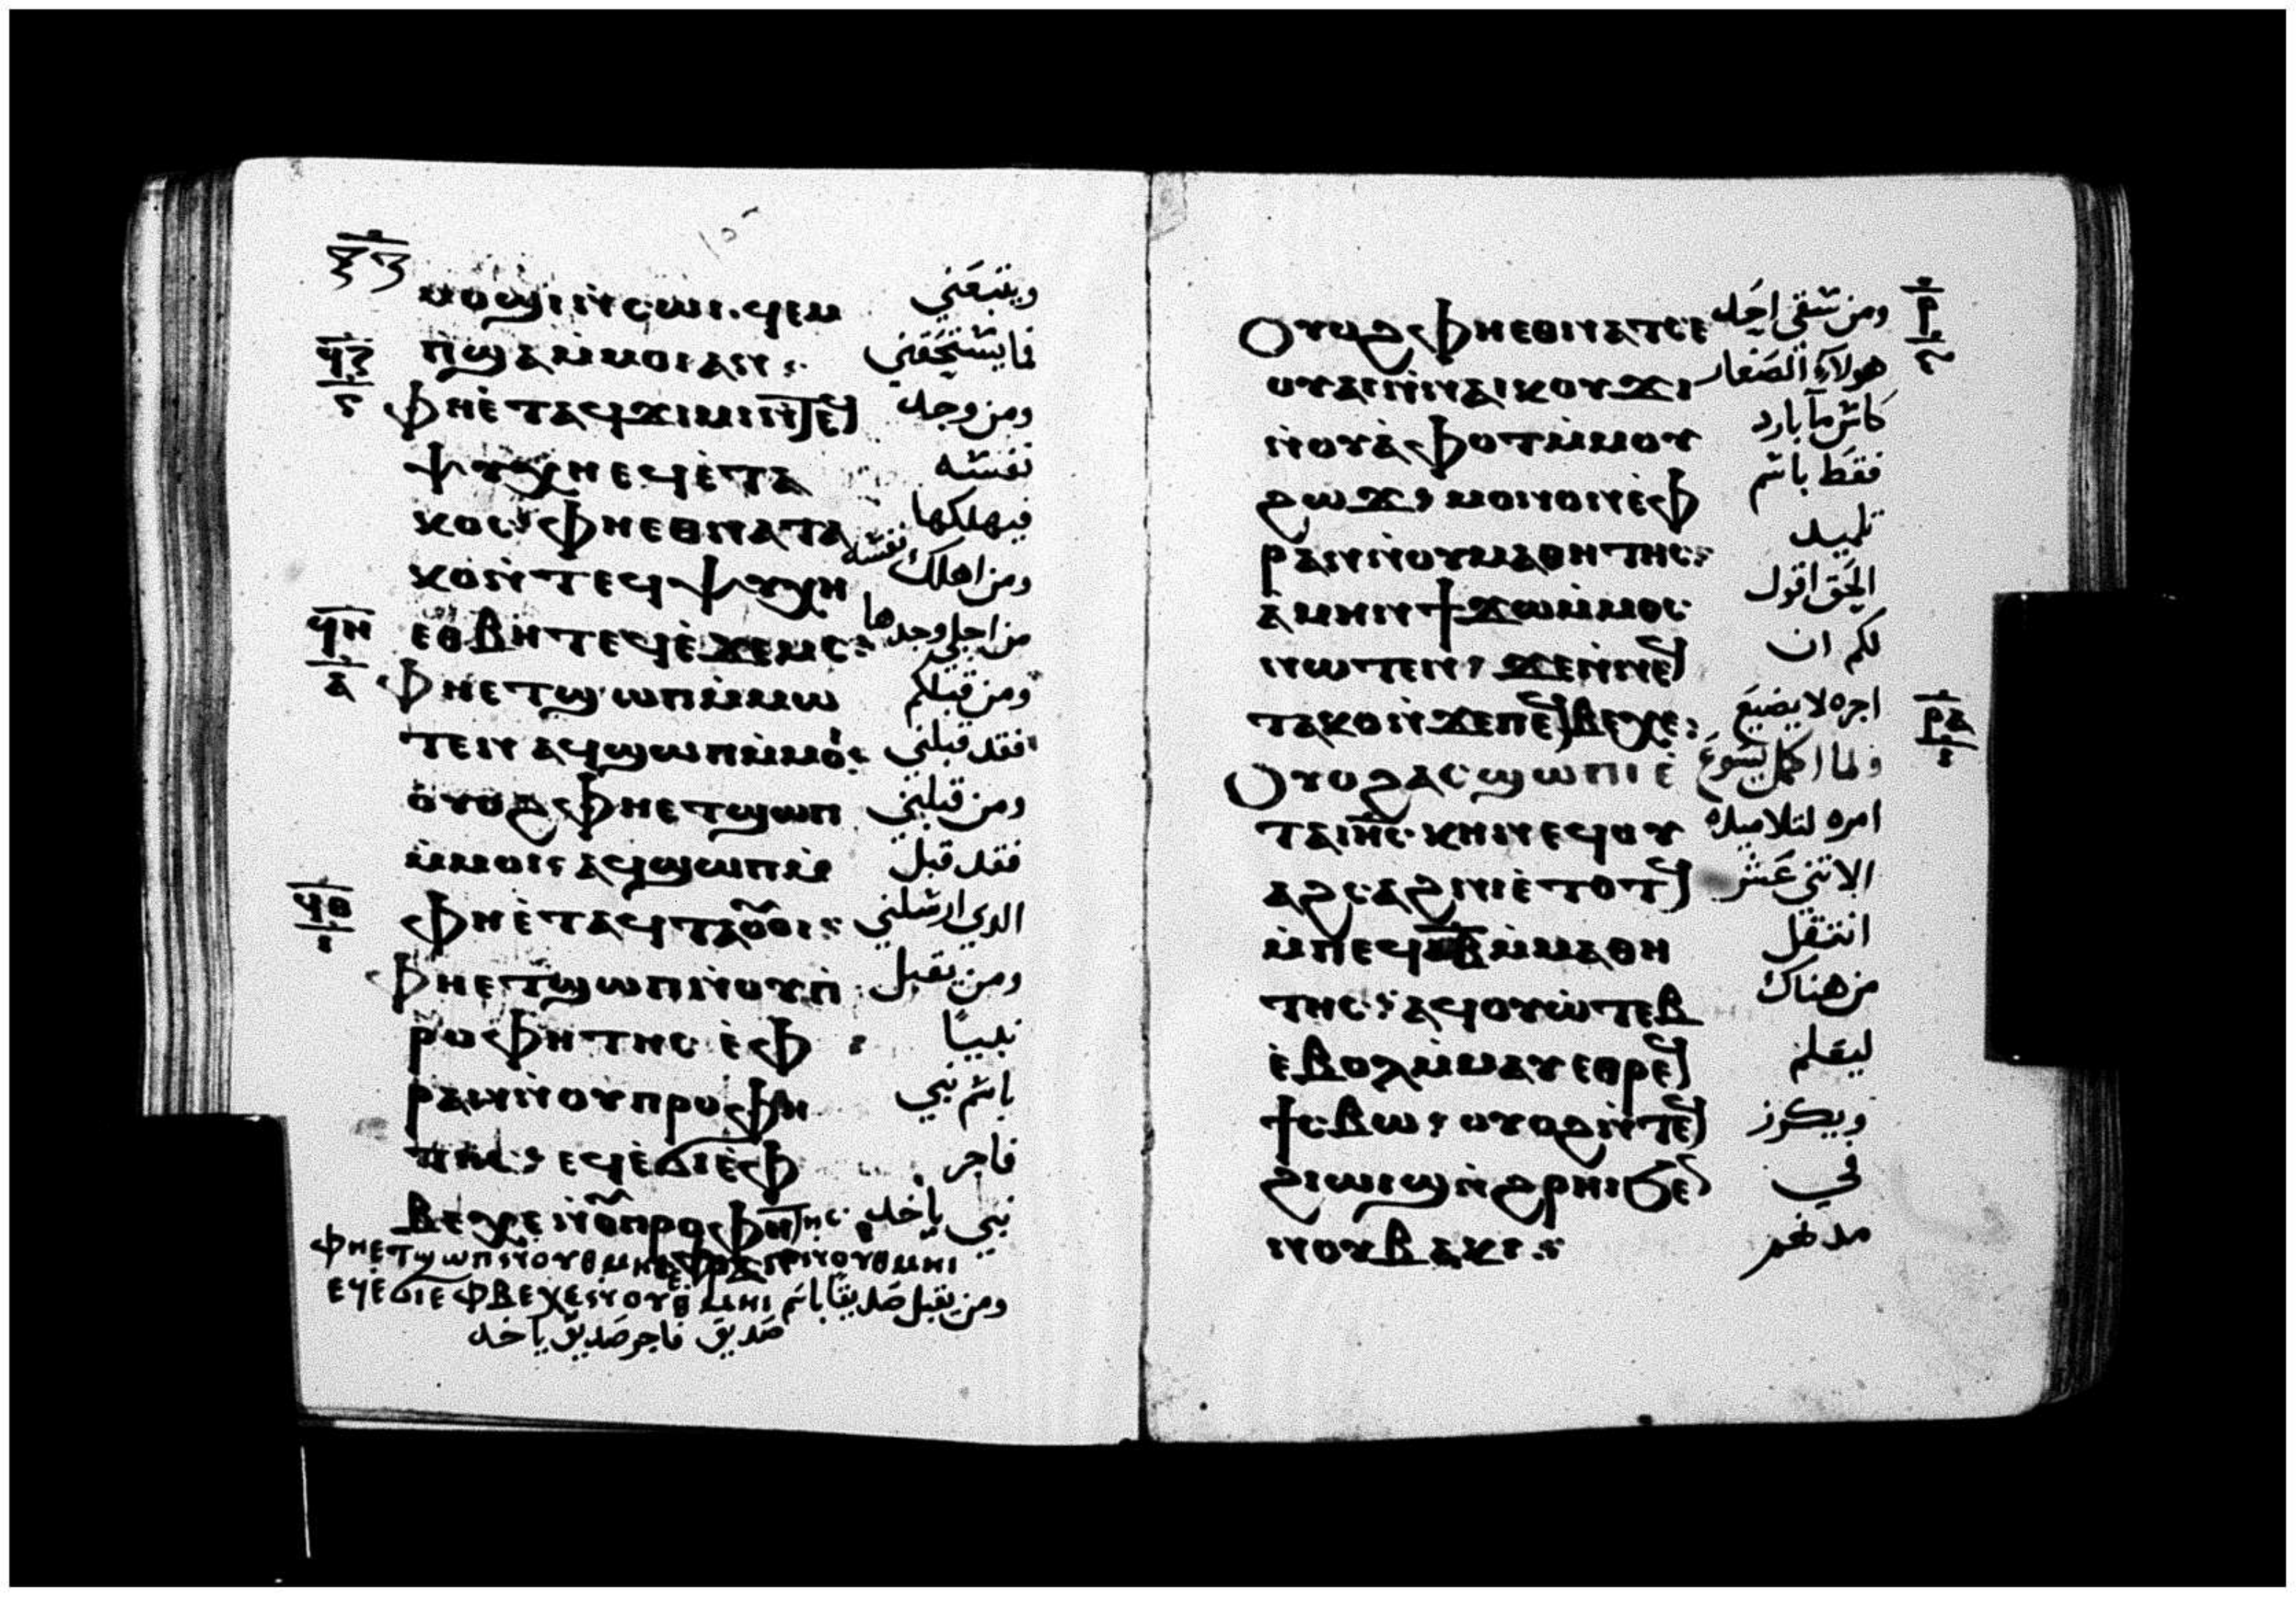 ⲙⲟϣⲓ ⲛ̀ⲥⲱⲓ. ϥⲉⲙ ويتبعني
ⲡ̀ϣⲁ ⲙ̀ⲙⲟⲓ ⲁⲛ: فما يستحقني
ϥⲍ
ⲋ
ⲫⲏⲉ̀ⲧⲁϥϫⲓⲙⲓ ⲛ̀ⲧⲉϥ ومن وجد
ⲯⲩⲭⲏ ⲉϥⲉ̀ⲧⲁ نفسه
ⲕⲟⲥ: ⲫⲏⲉⲑⲛⲁⲧⲁ فيهلكها
ⲕⲟ ⲛ̀ⲧⲉϥⲯⲩⲭⲏ ومن اهلك نفسه
ϥⲏ
ⲁ
ⲉⲑⲃⲏⲧ ⲉϥⲉ̀ϫⲉⲙⲥ: من اجلي وجدها
ⲫⲏⲉⲧϣⲱⲡ ⲙ̀ⲙⲱ ومن قبلكم
ⲧⲉⲛ ⲁϥϣⲱⲡ ⲙ̀ⲙⲟ: فقد قبلني
ⲟⲩⲟϩ ⲫⲏⲉⲧϣⲱⲡ ومن قبلني
ⲙ̀ⲙⲟⲓ: ⲁϥϣⲱⲡ ⲙ̀ فقد قبل
ϥⲑ
ⲓ
ⲫⲏⲉ̀ⲧⲁϥⲧⲁⲟⲩⲟⲓ: الدي ارسلني
ⲫⲏⲉⲧϣⲱⲡ ⲛ̀ⲟⲩⲡ̀ ومن يقبل
ⲣⲟⲫⲏⲧⲏⲥ ⲉ̀ⲫ: نبيًا
ⲣⲁⲛ ⲛ̀ⲟⲩⲡⲣⲟⲫⲏ باسم نبي
ⲧⲏⲥ: ⲉϥⲉ̀ϭⲓ ⲉ̀ⲫ فاجر
ⲃⲉⲭⲉ ⲛ̀ⲟⲩⲡⲣⲟⲫⲏⲧⲏⲥ نبي ياخد
ⲫⲏⲉⲧϣⲱⲡ ⲛ̀ⲟⲩⲑⲙⲏⲓ ⲉ̀ⲫⲣⲁⲛ ⲛ̀ⲟⲩⲑⲙⲏⲓ
ⲉϥⲉ̀ϭⲓ ⲉⲫⲃⲉⲭⲉ ⲛ̀ⲟⲩⲑⲙⲏⲓ ومن يقبل صديقًا باسم
صديق فاجر صديق ياخد
ⲣ
ⲟⲩⲟϩ ⲫⲏⲉⲑⲛⲁⲧⲥⲉ ومن سقي احد
ⲟⲩⲁⲓ ⲛ̀ⲛⲁⲓⲕⲟⲩϫⲓ هولاء الصغار
ⲛ̀ⲟⲩⲁ̀ⲫⲟⲧ ⲙ̀ⲙⲟⲩ كاس ما بارد
ϩⲱϫ: ⲙⲟⲛⲟⲛ ⲉ̀ⲫ فقط باسم
ⲣⲁⲛ ⲛ̀ⲟⲩⲙⲁⲑⲏⲧⲏⲥ: تلميد
ⲁ̀ⲙⲏⲛ ϯϫⲱ ⲙ̀ⲙⲟⲥ الحق اقول
ⲛⲱⲧⲉⲛ: ϫⲉ ⲛ̀ⲛⲉϥ لكم ان
ⲧⲁⲕⲟ ⲛ̀ϫⲉ ⲡⲉϥⲃⲉⲭⲉ: اجره لا يضيع
ⲣⲁ
ⲓ
ⲟⲩⲟϩ ⲁⲥϣⲱⲡⲓ ⲉ̀ ولما اكمل يسوع
ⲧⲁ ⲓⲏⲥ ⲕⲏⲛ ⲉϥⲟⲩ امره لتلاميده
ⲁϩⲥⲁϩⲛⲓ ⲉ̀ⲧⲟⲧϥ الاتني عشر
ⲙ̀ⲡⲉϥⲓⲃ ⲙ̀ⲙⲁⲑⲏ انتقل
ⲧⲏⲥ: ⲁϥⲟⲩⲱ̀ⲧⲉⲃ من هناك
ⲉ̀ⲃⲟⲗ ⲙ̀ⲙⲁⲩ ⲉⲑⲣⲉϥ ليعلم
ϯⲥⲃⲱ: ⲟⲩⲟϩ ⲛ̀ⲧⲉϥ ويكرز
ϩⲓⲱⲓϣ ⲛ̀ϩⲣⲏⲓ ϧⲉⲛ في
ⲛⲟⲩⲃⲁⲕⲓ: مدنهم